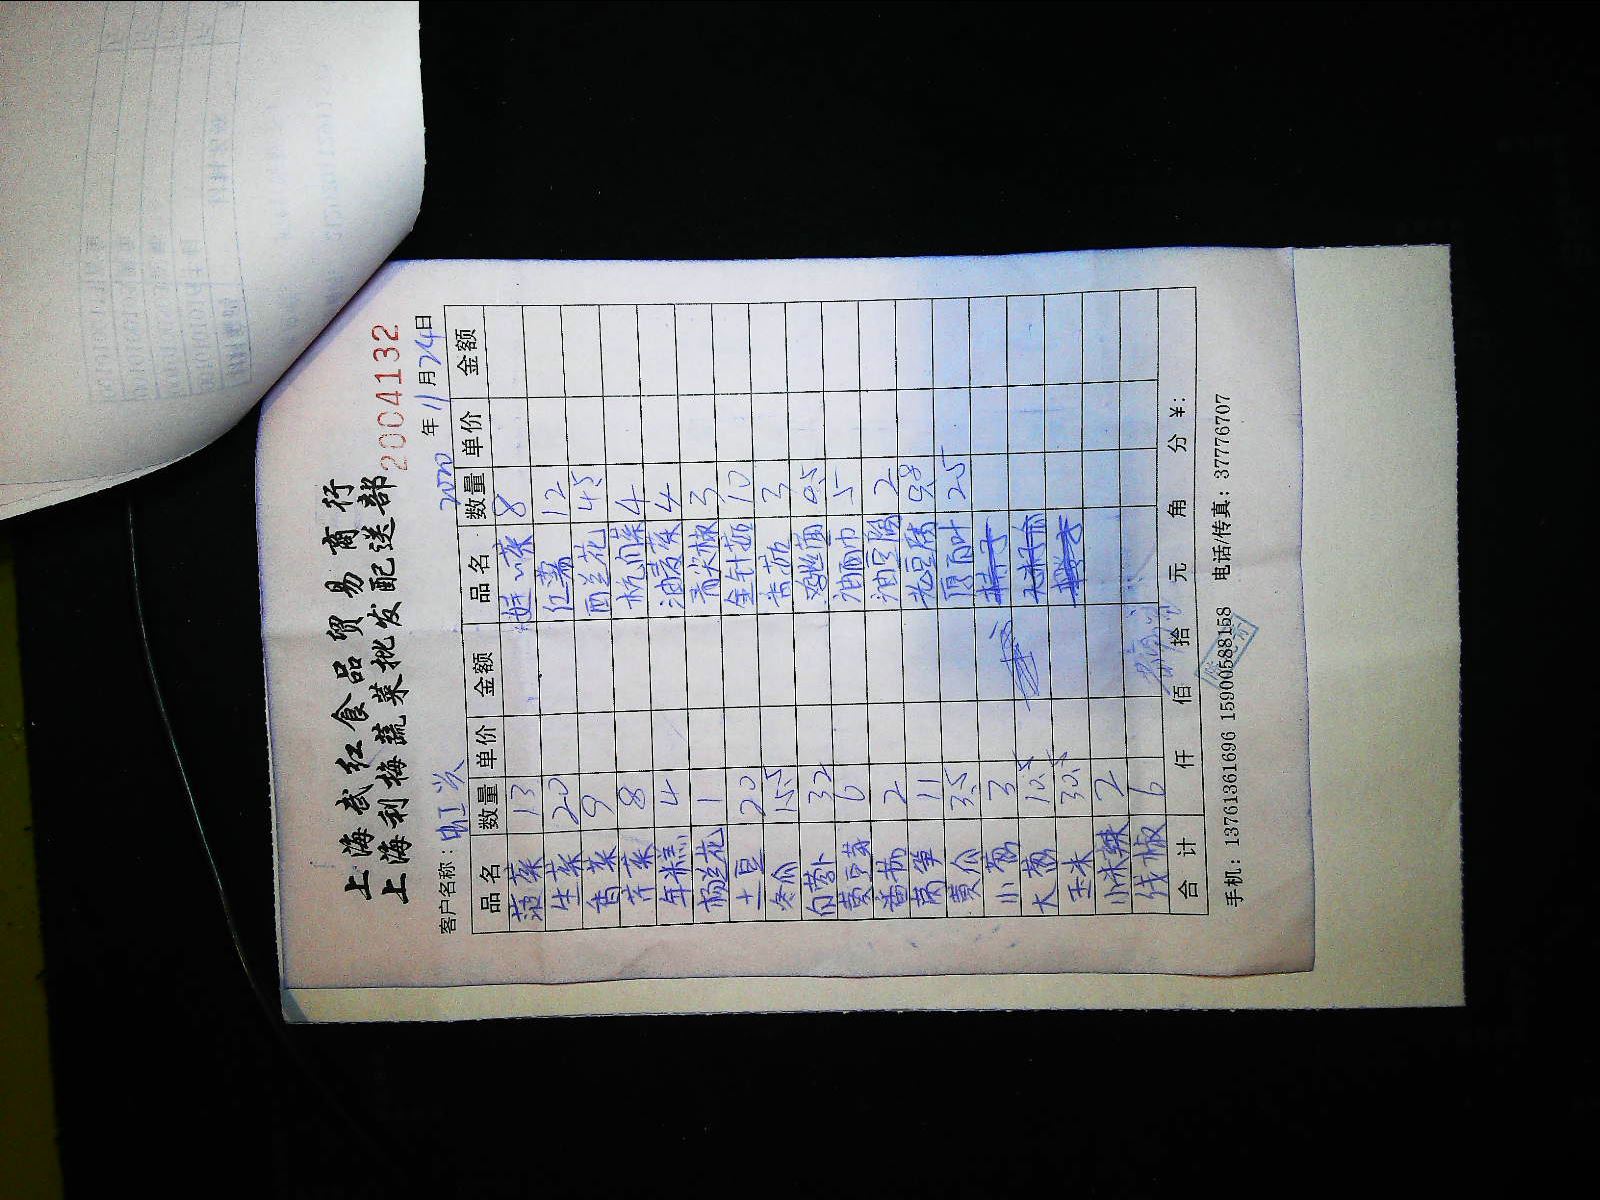 上海武红食品贸易商行
上海利梅蔬菜批发配送部
2004132
客户名称： 2020年11月24日
品名 数量 单价 金额 品名 数量 单价 金额
菠菜 13 娃娃菜 8
生菜 20 红薯 12
香菜 9 西兰花 45
芹菜 8 杭白菜 4
年糕 4 油麦菜 4
杨花 1 青尖椒 3
土豆 20 金针菇 10
冬瓜 15.5 香菇 3
白萝卜 32 鸡丝菌 0.5
黄豆芽 6 油面巾 5
蕃茄 2 油豆腐 2
莴笋 11 老豆腐 9.8
黄瓜 35 厚百叶 25
小葱 3
大葱 10.5
玉米 30.5
小米辣 2
线椒 6
合计 仟 佰 拾 元 角 分 ¥:
手机：13761361696 15900588158 电话/传真：37776707